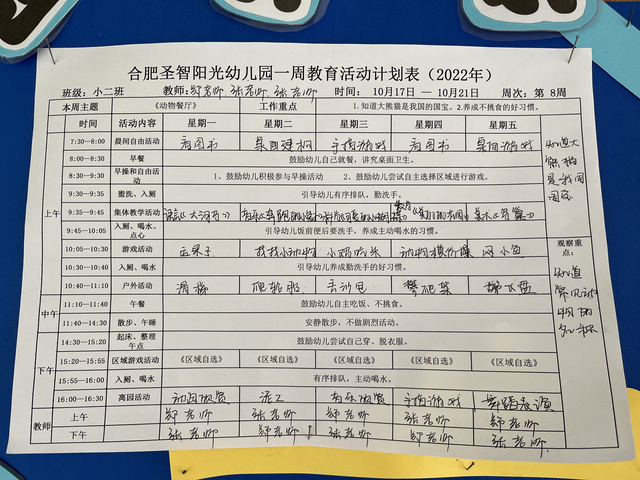 合肥圣智阳光幼儿园一周教育活动计划表（2022年）
班级：小二班 教师：郑老师、张老师、张老师 时间： 10月17日— 10月21日 周次：第 8周
本周主题 《动物餐厅》 工作重点 1.知道大熊猫是我国的国宝。2.养成不挑食的好习惯。
时间 活动内容 星期一 星期二 星期三 星期四 星期五
上午
7:30—8:00 晨间自由活动 看图书 桌面建构 手指游戏 看图书 桌面游戏
8:00—8:30 早餐 鼓励幼儿自己就餐，讲究桌面卫生。
8:30—9:30 早操和自由活动 1、鼓励幼儿积极参与早操活动 2、鼓励幼儿尝试自主选择区域进行游戏。
9:30—9:35 盥洗、入厕 引导幼儿有序排队，勤洗手。
9:35—9:45 集体教学活动
9:45—10:05 入厕、喝水、点心 引导幼儿饭前便后要洗手，养成主动喝水的习惯。
10:05—10:30 游戏活动 运果子 找找小动物 小鸡吃米 动物模仿操 网小鱼
10:30—10:40 入厕、喝水 引导幼儿养成勤洗手的好习惯。
10:40—11:10 户外活动 滑梯 丢沙包 攀爬架
知道大熊猫是我国国宝
观察重点：
知道常见动物的名称
中午
11:10—11:40 午餐 鼓励幼儿自主吃饭、不挑食。
11:40—14:30 散步、午睡 安静散步，不做剧烈活动。
下午
14:30—15:20 起床、整理午点 鼓励幼儿尝试自己穿、脱衣服。
15:20—15:55 区域游戏活动 《区域自选》 《区域自选》 《区域自选》 《区域自选》 《区域自选》
15:55—16:00 入厕、喝水 有序排队，主动喝水。
16:00—16:30 离园活动 动画欣赏 泥工 音乐欣赏 手指游戏 舞蹈表演
教师
上午 郑老师 张老师 郑老师 张老师 郑老师
下午 张老师 郑老师 张老师 郑老师 张老师